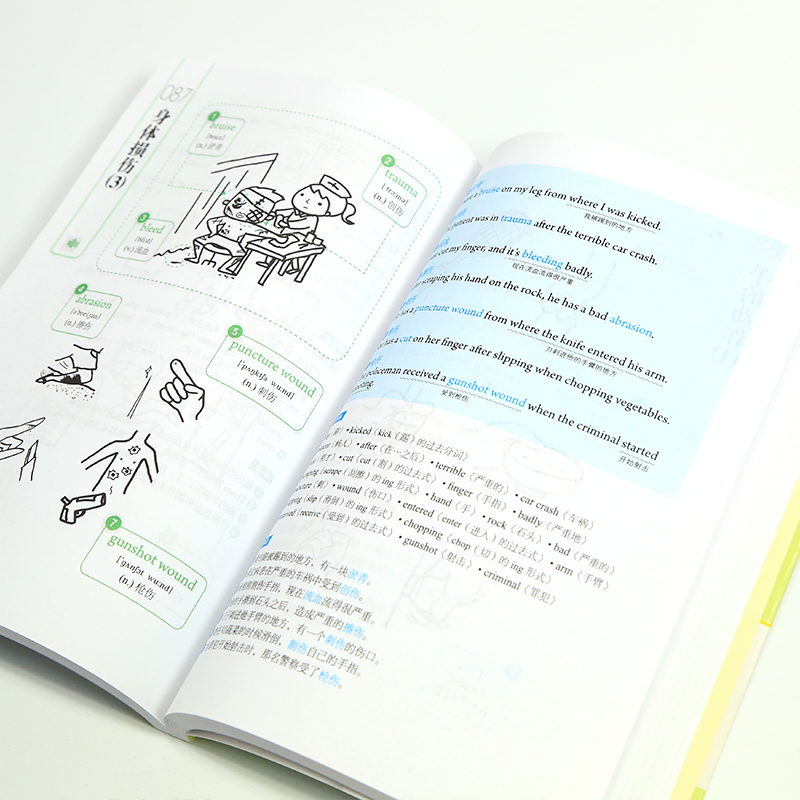 087
身体损伤③
1
bruise
[bruz]
(n.) 淤青
2
trauma
[ˋtrɔmə]
(n.) 创伤
3
bleed
[blid]
(v.) 流血
4
abrasion
[əˋbreʒən]
(n.) 擦伤
5
puncture wound
[ˋpʌŋktʃɚ wund]
(n.) 刺伤
7
gunshot wound
[ˋgʌnʃɑt wund]
(n.) 枪伤
bruise on my leg from where I was kicked.
我被踢到的地方
patient was in trauma after the terrible car crash.
cut my finger, and it's bleeding badly.
现在流血流得很严重
scraping his hand on the rock, he has a bad abrasion.
has a puncture wound from where the knife entered his arm.
刀刺进他的手臂的地方
has a cut on her finger after slipping when chopping vegetables.
policeman received a gunshot wound when the criminal started
受到枪伤
开始射击
• kicked（kick（踢）的过去分词）
（病人） • after（在…之后） • terrible（严重的） • car crash（车祸）
• cut（cut（割）的过去式） • finger（手指） • badly（严重地）
（scrape（刮擦）的 ing 形式） • hand（手） • rock（石头） • bad（严重的）
（刺） • wound（伤口） • entered（enter（进入）的过去式） • arm（手臂）
（slip（滑倒）的 ing 形式） • chopping（chop（切）的 ing 形式）
（receive（受到）的过去式） • gunshot（射击） • criminal（罪犯）
被踢到的地方，有一块淤青。
在严重的车祸中受到创伤。
割伤手指，现在流血流得很严重。
手擦到石头之后，造成严重的擦伤。
刺进他手臂的地方，有一个刺伤的伤口。
切蔬菜的时候滑倒，割伤自己的手指。
开始射击时，那名警察受了枪伤。